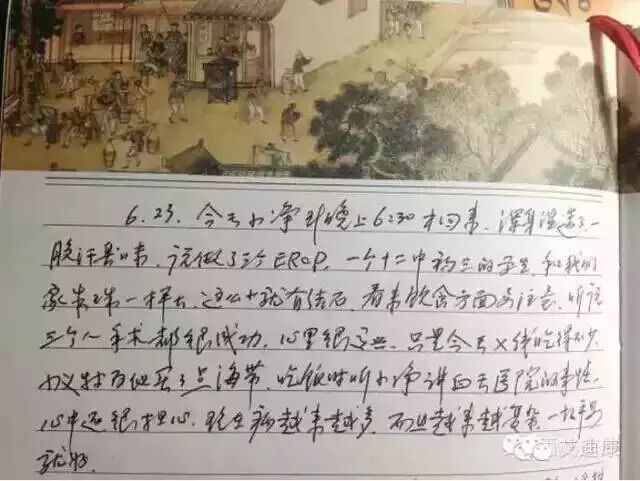 6.23. 今天小净到晚上6:30才回来，浑身湿透了一
股汗臭味，说做了三个ERCP，一个十二中初三的学生，和我们
家朱珠一样大，这么小就有结石，看来饮食方面要注意，听说
三个人手术都很成功，心里很高兴，只是今天X线吃得不少，
特为他买了点海带，吃饭时听小净讲白天医院的事情，
心中还很担心，现在病越来越多，而且越来越复杂，一切平安
就好。
西艾迪康